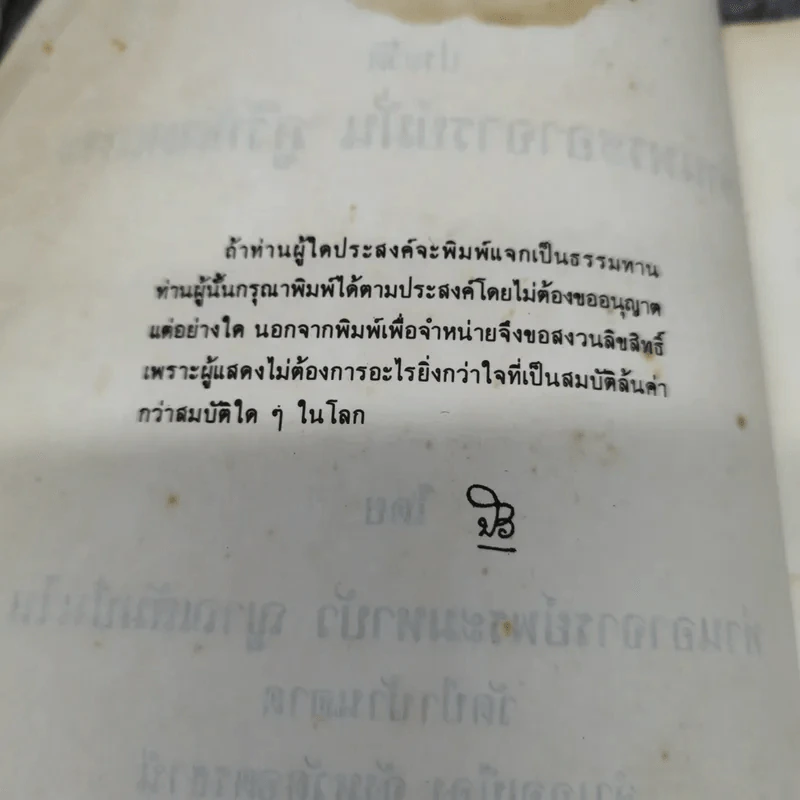 ถ้าท่านผู้ใดประสงค์จะพิมพ์แจกเป็นธรรมทาน
ท่านผู้นั้นกรุณาพิมพ์ได้ตามประสงค์โดยไม่ต้องขออนุญาต
แต่อย่างใด นอกจากพิมพ์เพื่อจำหน่ายจึงขอสงวนลิขสิทธิ์
เพราะผู้แสดงไม่ต้องการอะไรยิ่งกว่าใจที่เป็นสมบัติล้นค่า
กว่าสมบัติใด ๆ ในโลก